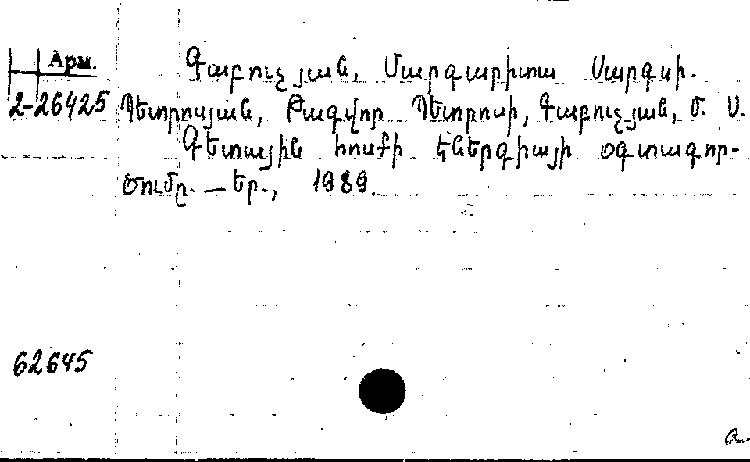 Арм.
Գաբուչյան, Մարգարիտա Սարգսի.
2-26425 Պետրոսյան, Թագվոր Պետրոսի, Գաբուչյան, Մ. Ս.
Գետային հոսքի էներգիայի օգտագոր-
ծումը. — Եր., 1989.
62645
а.